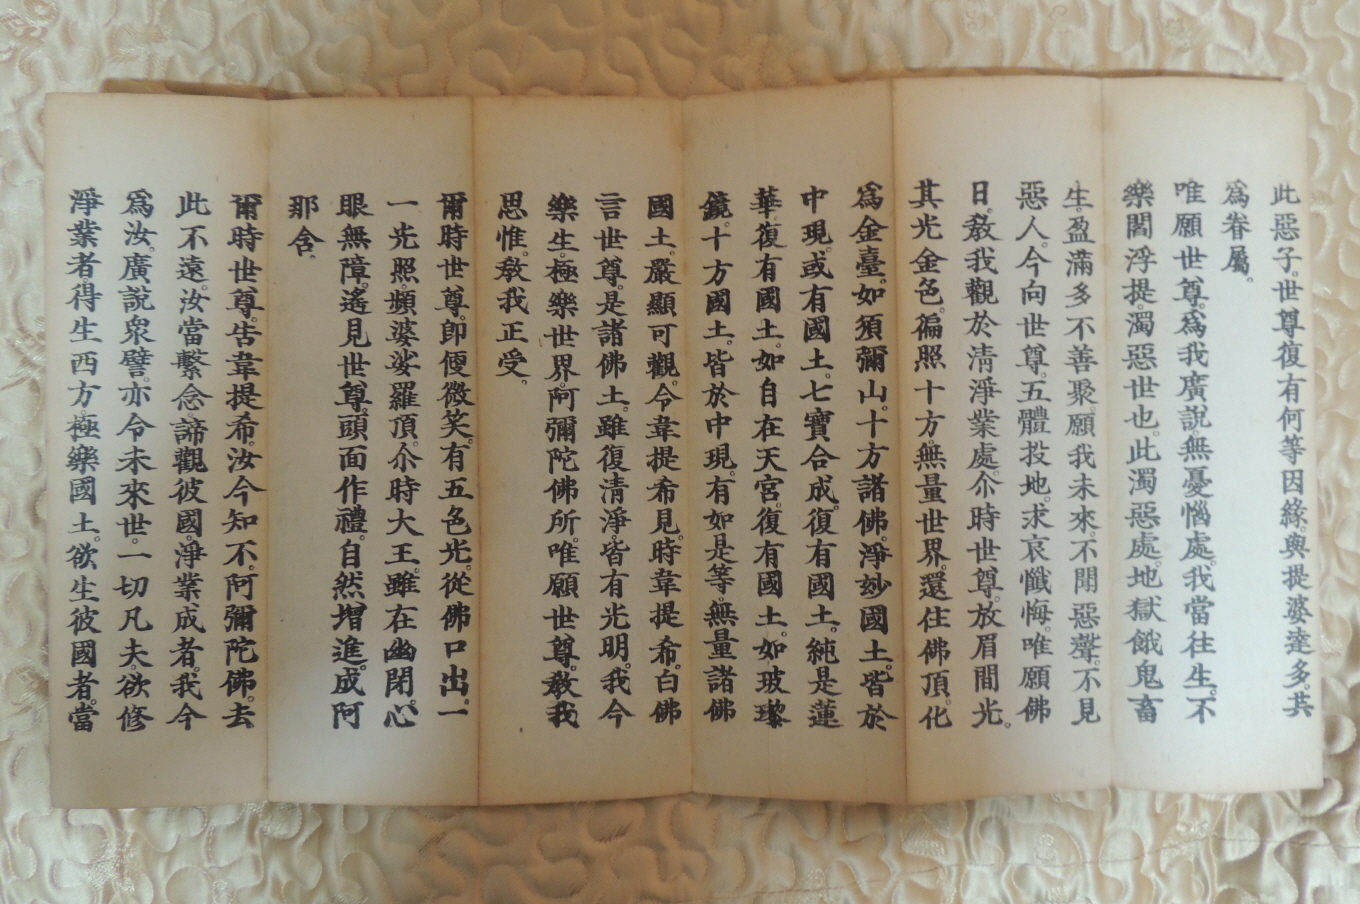 此惡子。世尊復有何等因緣。與提婆達多。共
爲眷屬。
唯願世尊。爲我廣說。無憂惱處。我當往生。不
樂閻浮提濁惡世也。此濁惡處。地獄餓鬼畜
生。盈滿多不善聚。願我未來。不聞惡聲。不見
惡人。今向世尊。五體投地。求哀懺悔。唯願佛
日。敎我觀於清淨業處。尒時世尊。放眉間光。
其光金色。徧照十方。無量世界。還住佛頂。化
爲金臺。如須彌山。十方諸佛。淨妙國土。皆於
中現。或有國土。七寶合成。復有國土。純是蓮
華。復有國土。如自在天宮。復有國土。如玻瓈
鏡。十方國土。皆於中現。有如是等。無量諸佛
國土。嚴顯可觀。今韋提希見。時韋提希。白佛
言世尊。是諸佛土。雖復清淨。皆有光明。我今
樂生。極樂世界。阿彌陀佛所。唯願世尊。敎我
思惟。敎我正受。
爾時世尊。卽便微笑。有五色光。從佛口出。一
一光照。頻婆娑羅頂。尒時大王。雖在幽閉。心
眼無障。遙見世尊。頭面作禮。自然增進。成阿
那含。
爾時世尊。告韋提希。汝今知不。阿彌陀佛。去
此不遠。汝當繫念。諦觀彼國。淨業成者。我今
爲汝。廣說衆譬。亦令未來世。一切凡夫。欲修
淨業者。得生西方。極樂國土。欲生彼國者。當